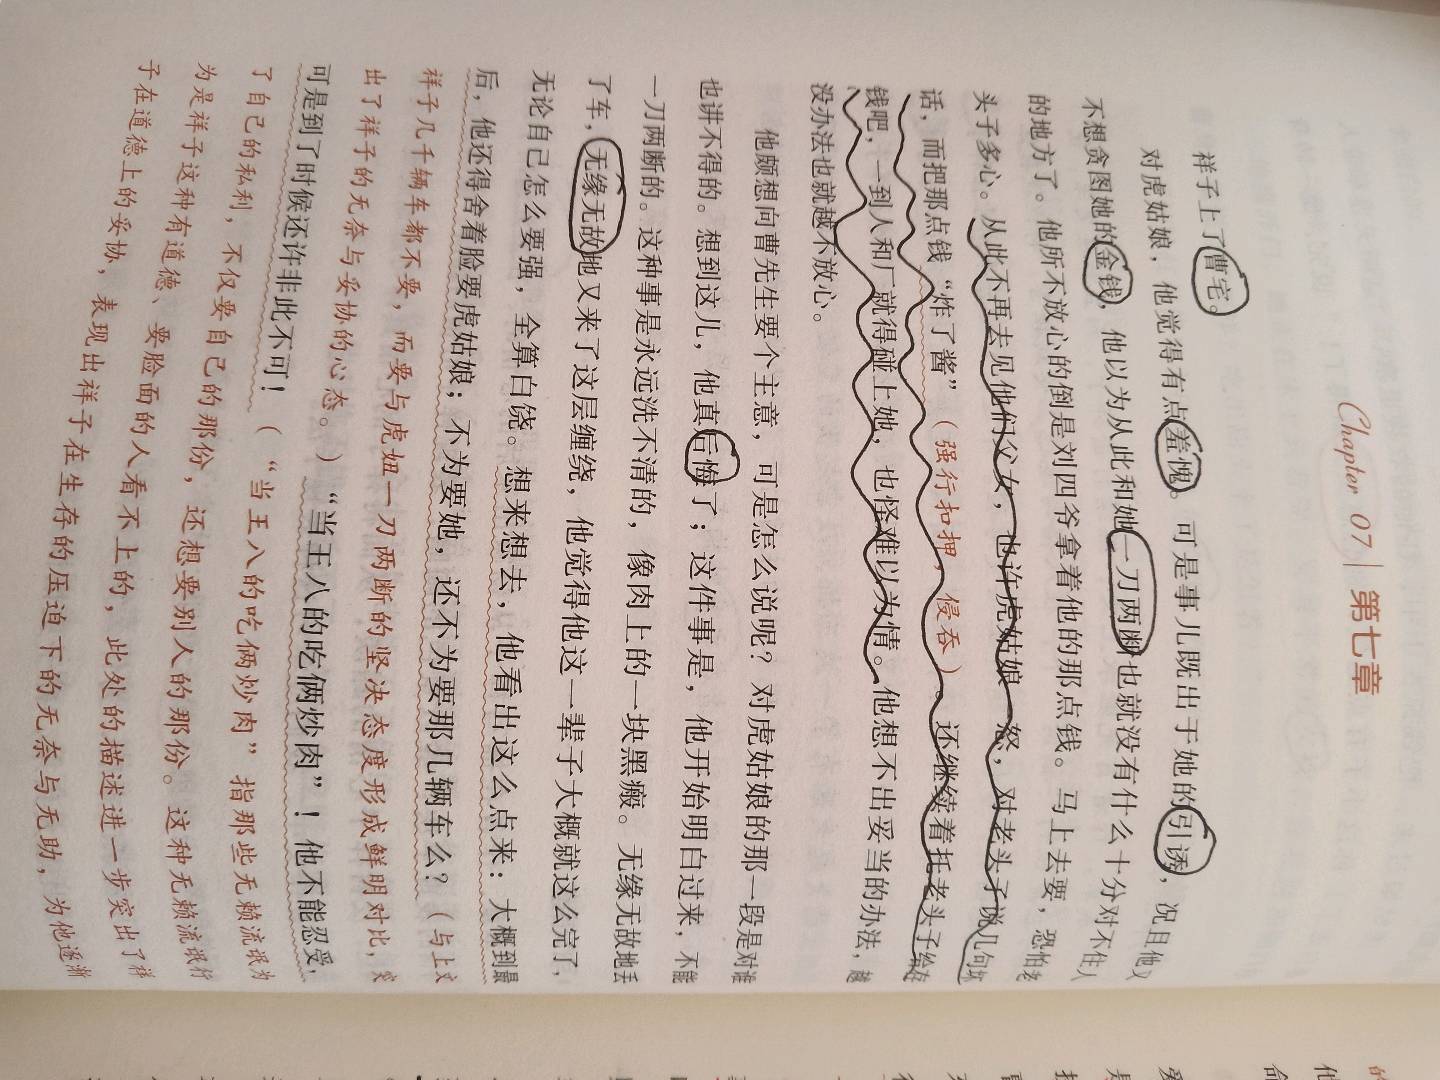 Chapter 07 | 第七章
祥子上了曹宅。
对虎姑娘，他觉得有点羞愧。可是事儿既出于她的引诱，况且他又
不想贪图她的金钱，他以为从此和她一刀两断也就没有什么十分对不住人
的地方了。他所不放心的倒是刘四爷拿着他的那点钱。马上去要，恐怕老
头子多心。从此不再去见他们父女，也许虎姑娘一怒，对老头子说几句坏
话，而把那点钱“炸了酱”（强行扣押，侵吞）。还继续着托老头子给存
钱吧，一到人和厂就得碰上她，也怪难以为情。他想不出妥当的办法，越
没办法也就越不放心。
他颇想向曹先生要个主意，可是怎么说呢？对虎姑娘的那一段是对谁
也讲不得的。想到这儿，他真后悔了；这件事是，他开始明白过来，不能
一刀两断的。这种事是永远洗不清的，像肉上的一块黑瘢。无缘无故地丢
了车，无缘无故地又来了这层缠绕，他觉得他这一辈子大概就这么完了，
无论自己怎么要强，全算白饶。想来想去，他看出这么点来：大概到最
后，他还得舍着脸要虎姑娘；不为要她，还不为要那几辆车么？（与上文
祥子几千辆车都不要，而要与虎妞一刀两断的坚决态度形成鲜明对比，突
出了祥子的无奈与妥协的心态。）“当王八的吃俩炒肉”！他不能忍受，
可是到了时候还许非此不可！（“当王八的吃俩炒肉”指那些无赖流氓为
了自己的私利，不仅要自己的那份，还想要别人的那份。这种无赖流氓行
为是祥子这种有道德、要脸面的人看不上的，此处的描述进一步突出了祥
子在道德上的妥协，表现出祥子在生存的压迫下的无奈与无助，为他逐渐